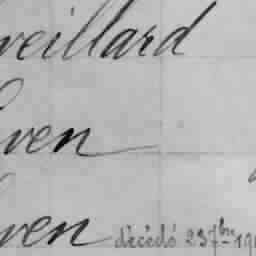 veillard
ven
ven décédé 23 7bre 19